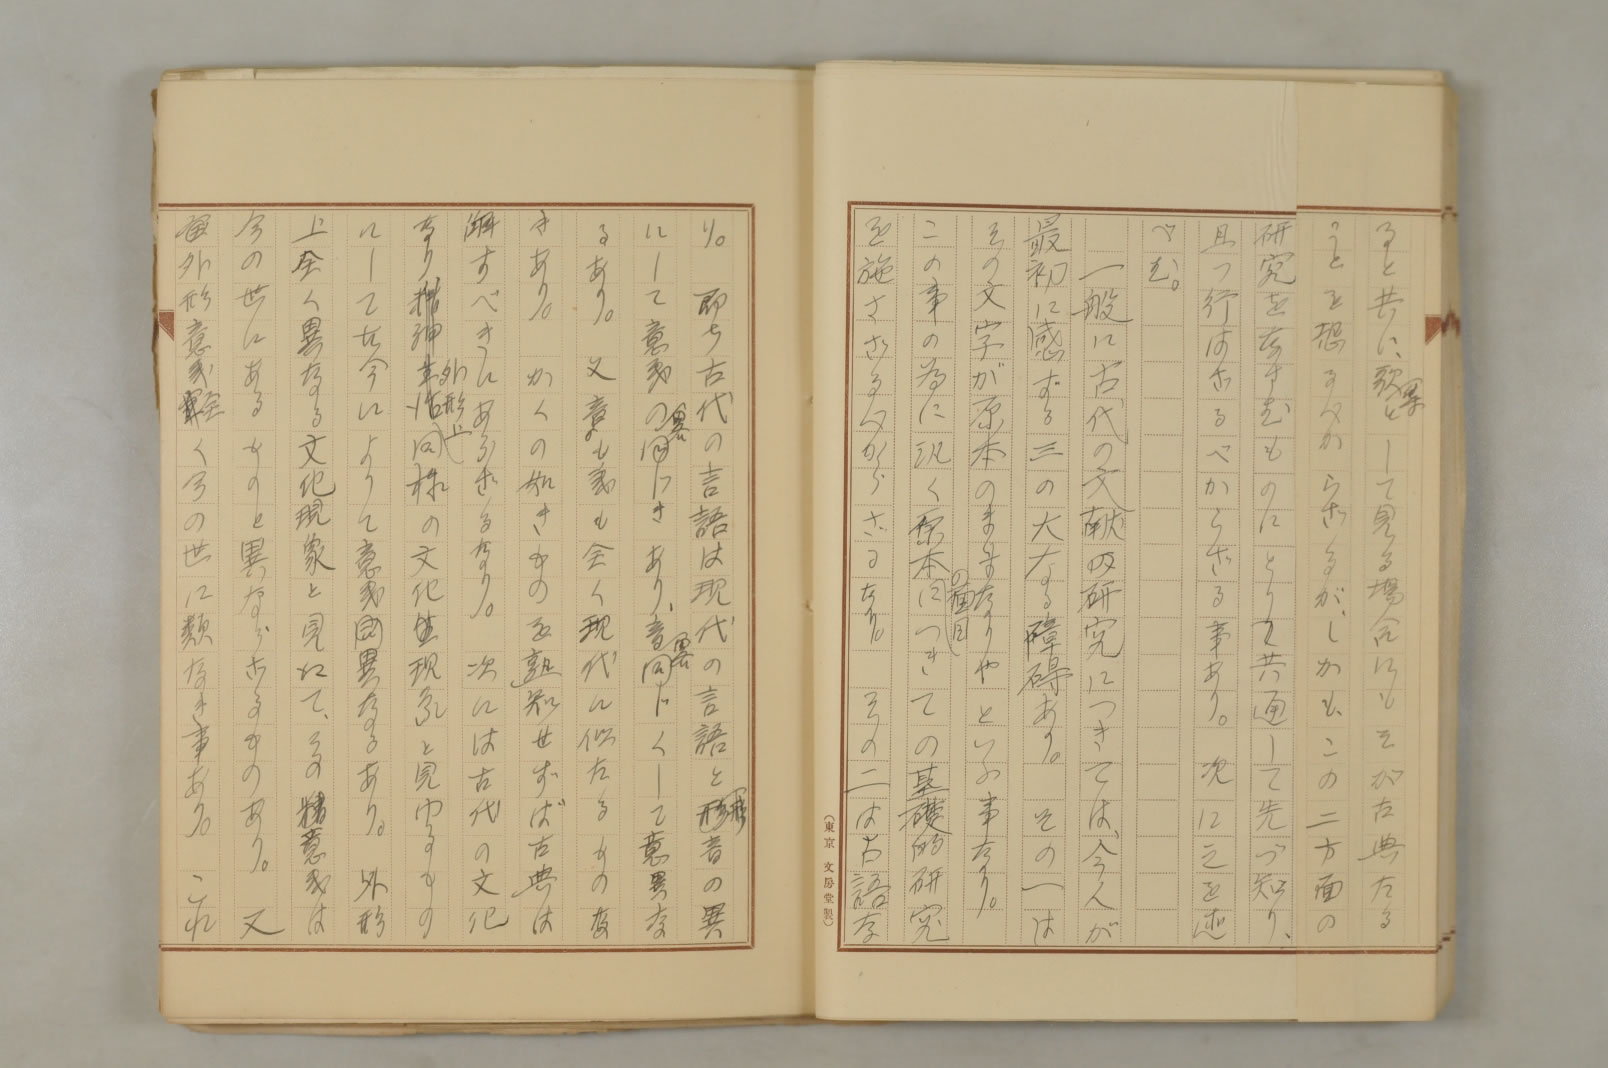 ると共に、歌として見る場合にもそが古典たる
ことを想るべからざるが、しかも、この二方面の
研究をなすむものにとりて共通して先づ知り、
且つ行はざるべからざる事あり。次に之を述
べむ。
一般に古代の文献の研究につきては、今人が
最初に感ずる三の大なる障碍あり。その一は
その文字が原本のまゝなりやといふ事なり。
この事の為に汎く原本の面目につきての基礎的研究
を施さざるべからざるなり。その二は古語な
り。即ち古代の言語は現代の言語と形音の異
にして意義の同じきあり、音同じくして意異な
るあり。又音も義も全く現代に似たるものな
きあり。かくの如きものを熟知せずば古典は
解すべきにあらざるなり。次には古代の文化
なり 外形上同様の文化現象と見ゆるもの
にして古今によりて意義異なるあり。外形
上全く異なる文化現象と見えて、その精意義は
今の世にあるものと異ならざるものあり。又
外形意義全く今の世に類なき事あり。これ
(東京 文房堂製)